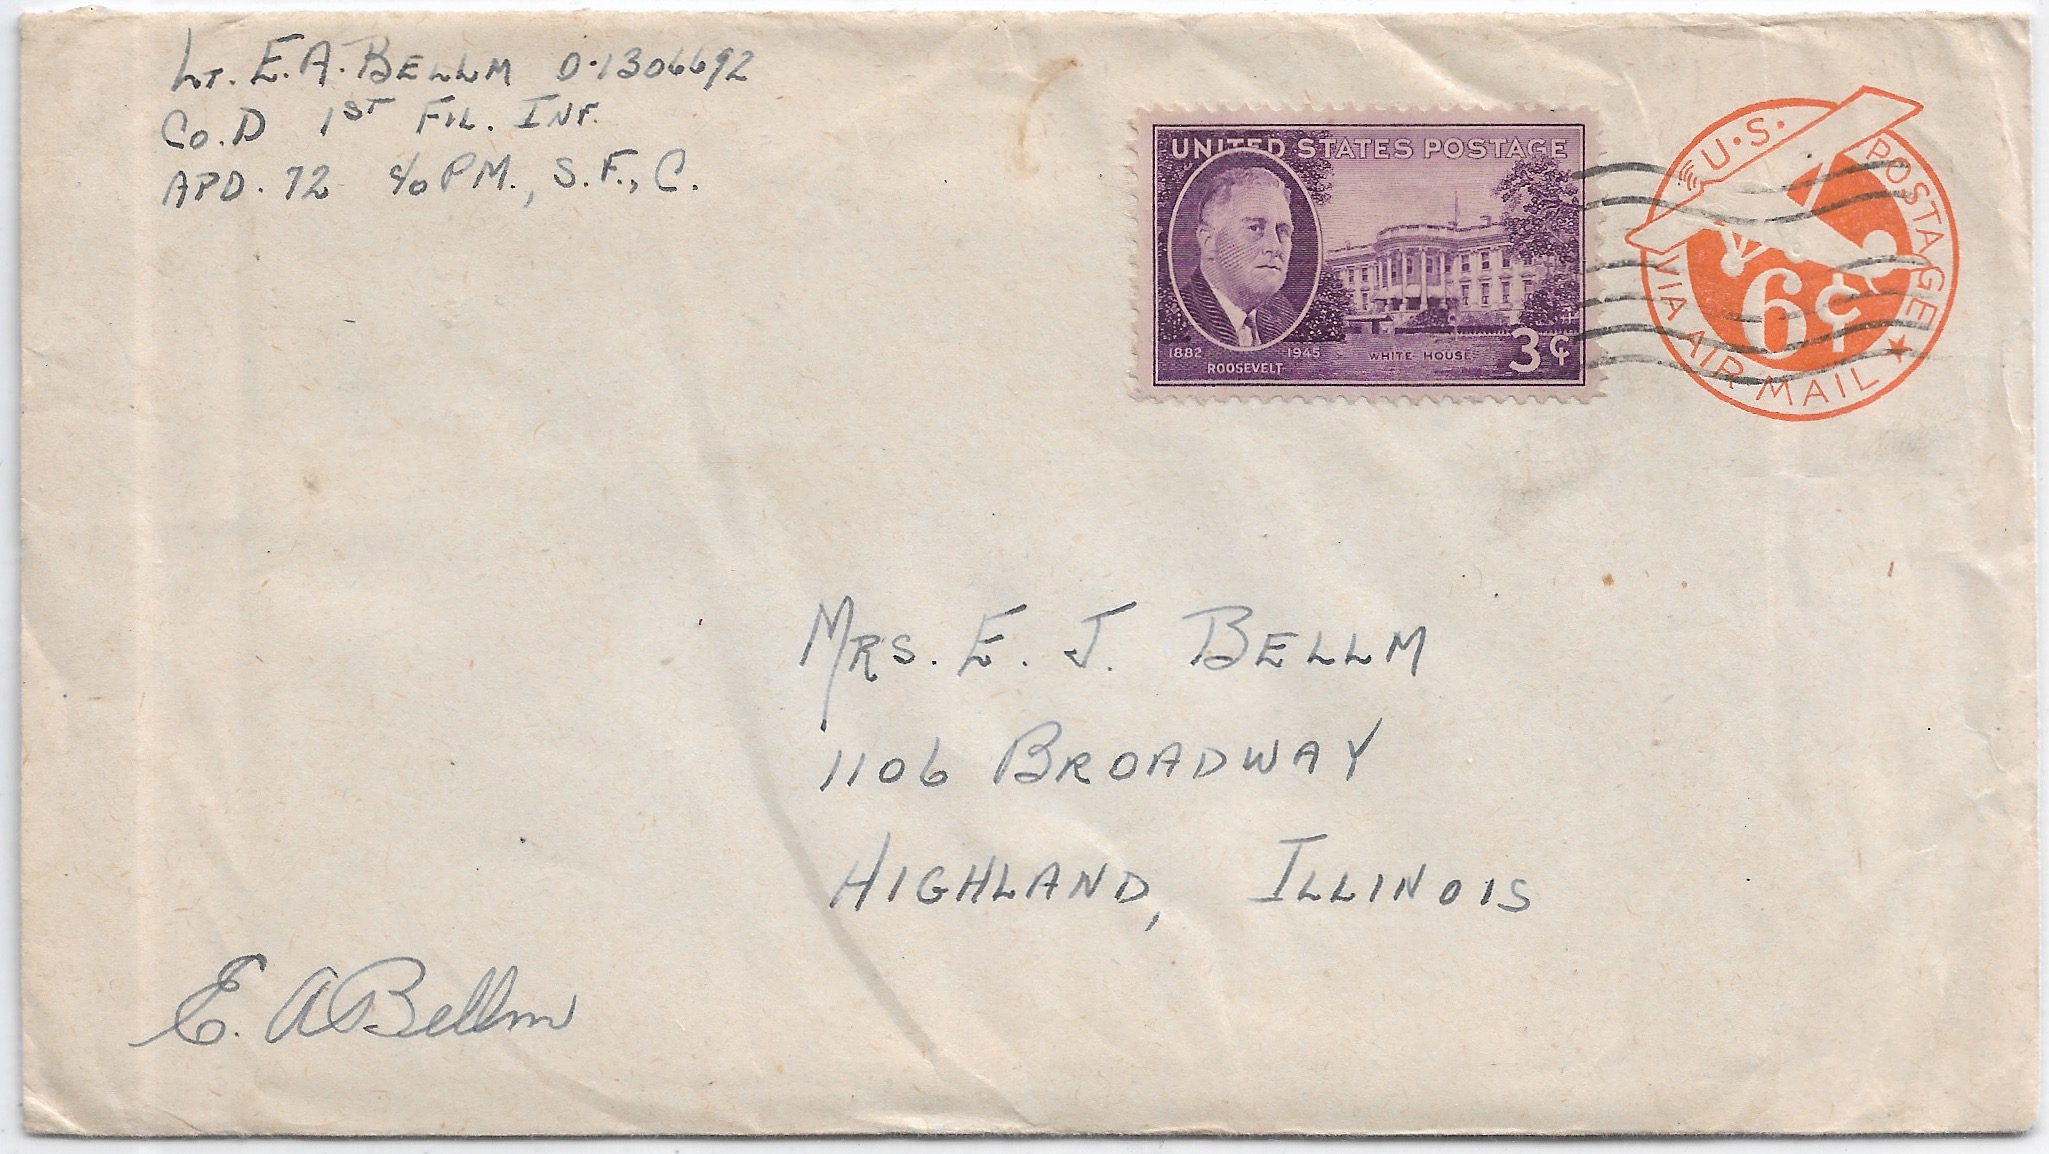 Lt. E. A. Bellm O-1306692
Co. D 1st Fil. Inf.
APO. 72 c/o PM., S. F., C.
UNITED STATES POSTAGE
1882 1945
ROOSEVELT
WHITE HOUSE
3¢
U.S. POSTAGE
6¢
VIA AIR MAIL
MRS. E. J. BELLM
1106 BROADWAY
HIGHLAND, ILLINOIS
E. A Bellm